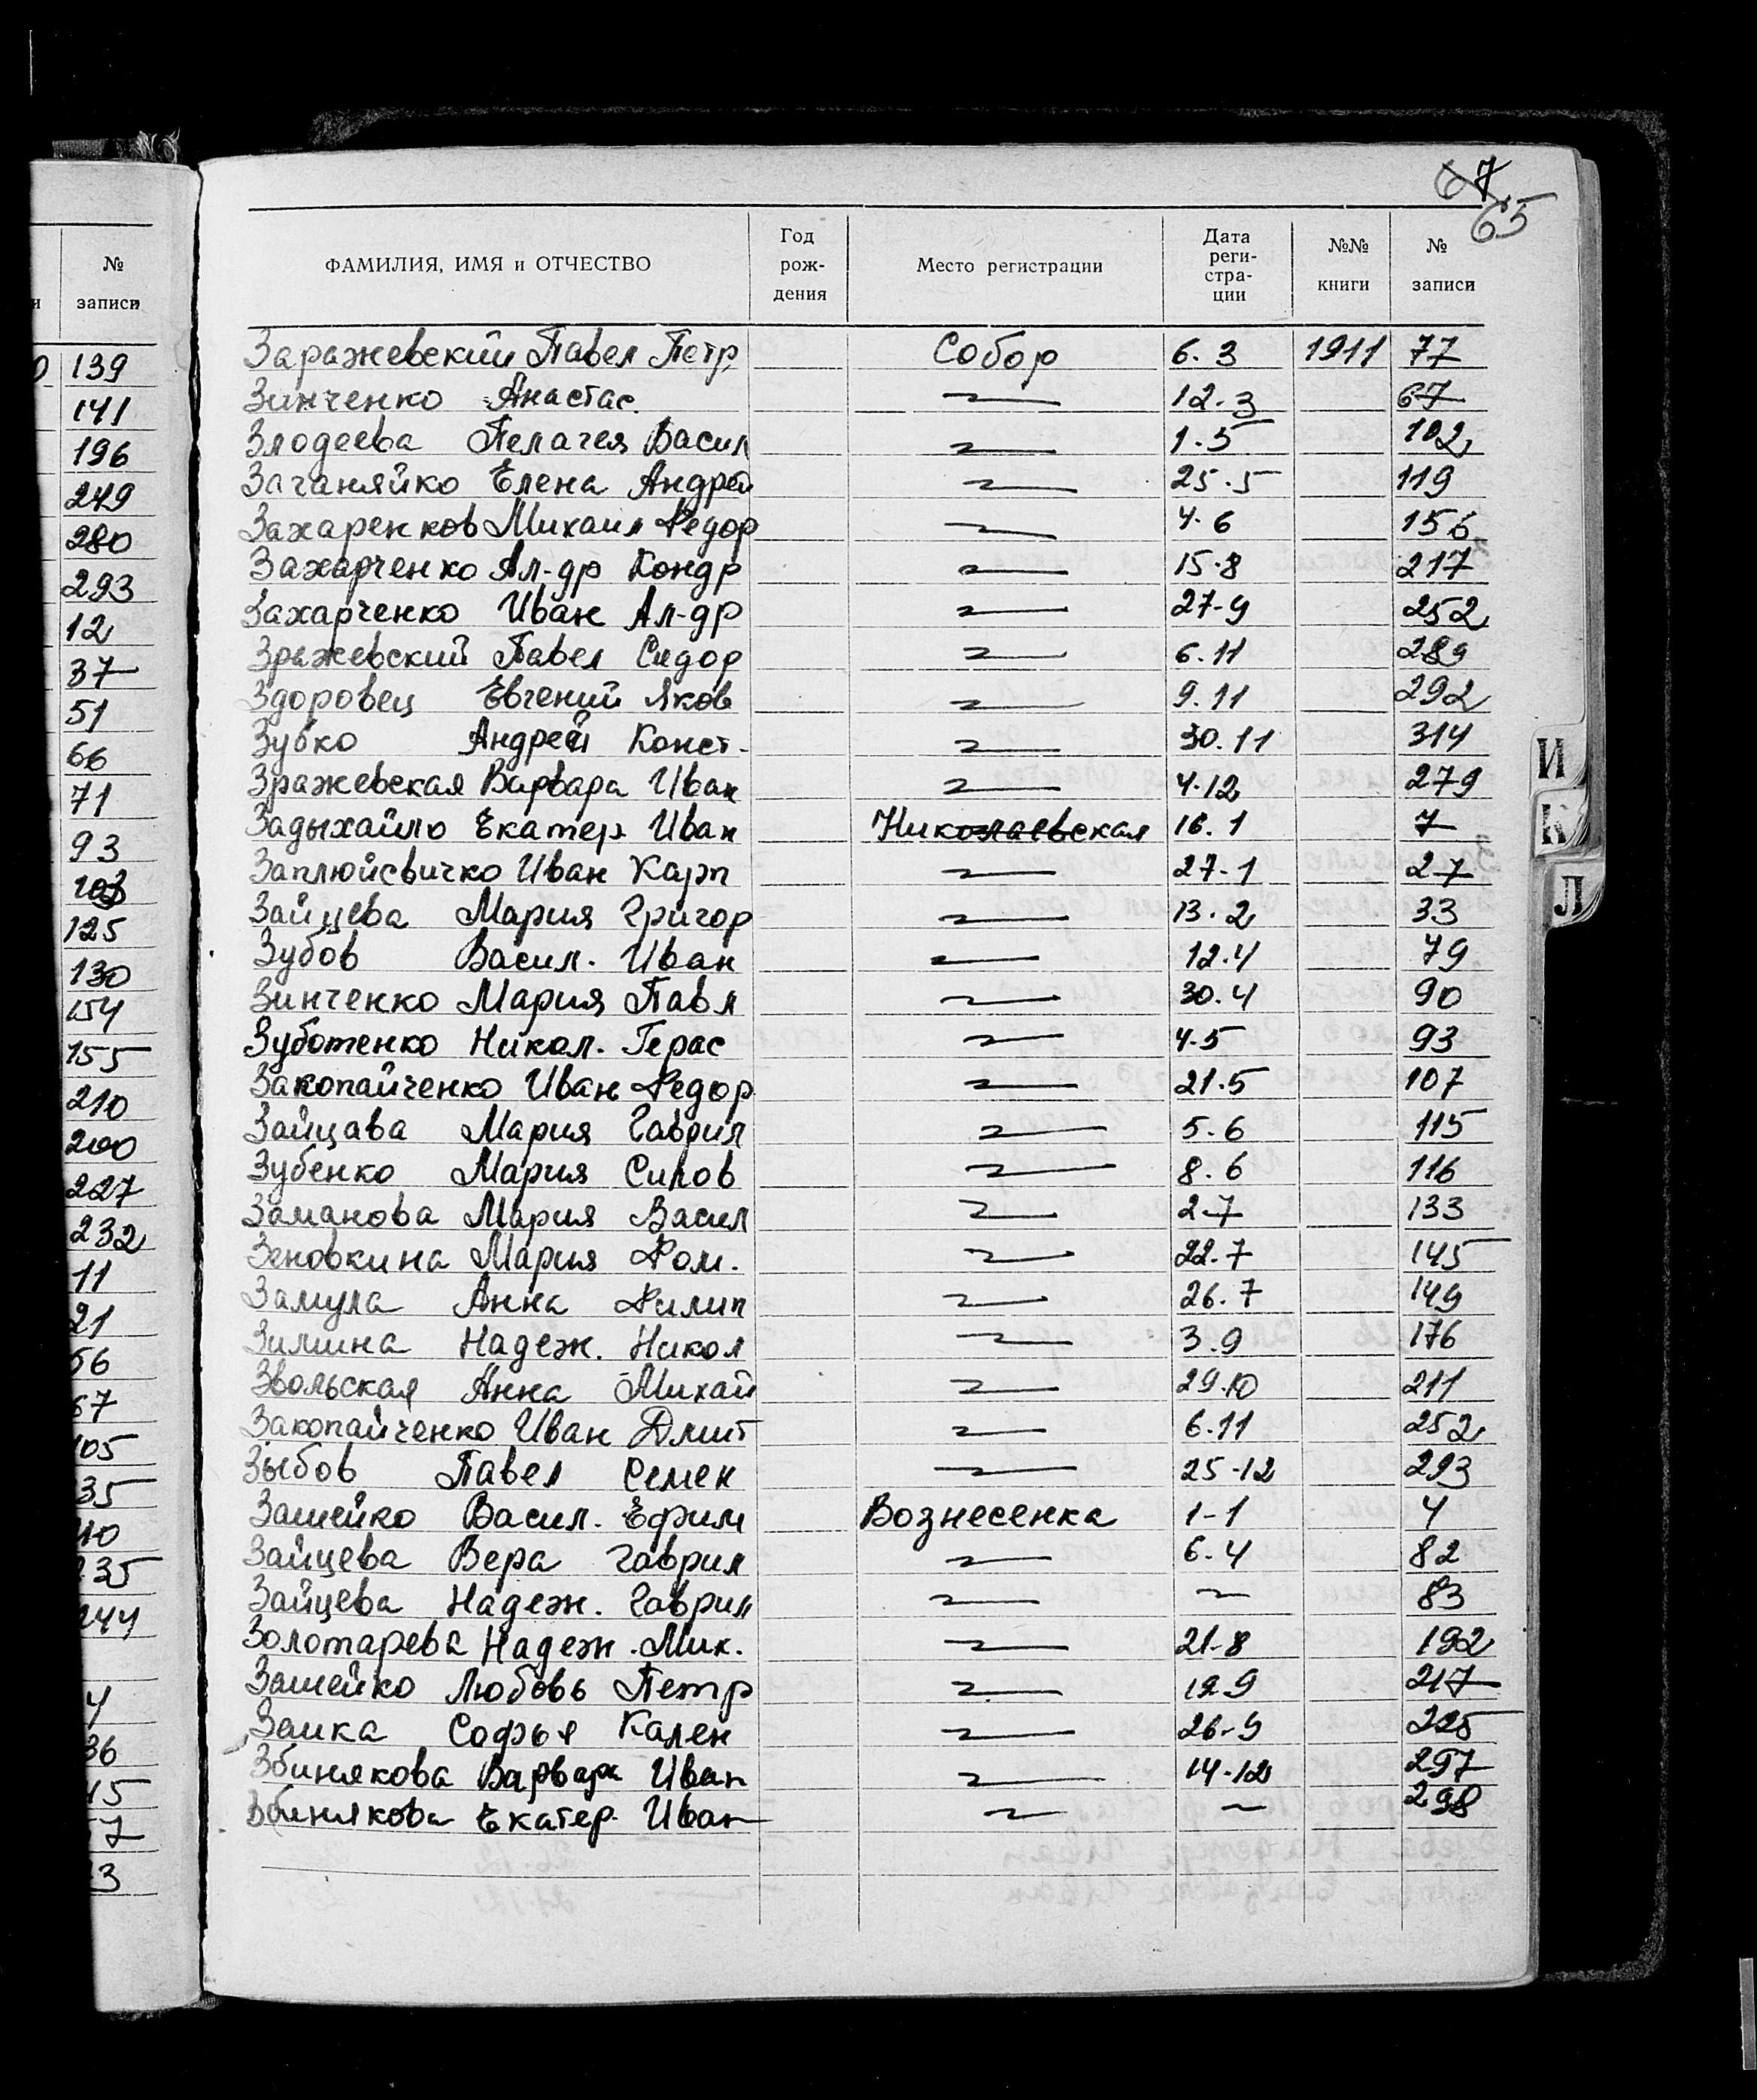 №
записи
139
141
196
249
280
293
12
37
51
66
71
93
103
125
130
154
155
210
200
227
232
11
21
56
67
105
35
235
244
4
36
15
7
3
67
65
ФАМИЛИЯ, ИМЯ и ОТЧЕСТВО Год рож-дения Место регистрации Дата реги-стра-ции №№ книги № записи
Заражевский Павел Петр. Собор 6.3 1911 77
Зинченко Анастас. — 12.3 67
Злодеева Пелагея Васил — 1.5 102
Заганяйко Елена Андрей — 25.5 119
Захаренков Михаил Федор — 4.6 156
Захарченко Ал-др Кондр — 15.8 217
Захарченко Иван Ал-др — 27-9 252
Зражевский Павел Сидор — 6.11 289
Здоровец Евгений Яков — 9.11 292
Зубко Андрей Конст- — 30.11 314
Зражевская Варвара Иван — 4.12 279
Задыхайло Екатер. Иван Николаевская 16.1 7
Заплюйсвичко Иван Карп — 27-1 27
Зайцева Мария Григор — 13.2 33
Зубов Васил. Иван — 12.4 79
Зинченко Мария Павл — 30.4 90
Зуботенко Никол. Герас — 4.5 93
Закопайченко Иван Федор — 21.5 107
Зайцава Мария Гаврил — 5.6 115
Зубенко Мария Силов — 8.6 116
Заманова Мария Васил — 2.7 133
Зеновкина Мария Фом. — 22.7 145
Замула Анна Филип — 26.7 149
Зимина Надеж. Никол — 3.9 176
Звольская Анна Михай — 29.10 211
Закопайченко Иван Дмит — 6.11 252
Зыбов Павел Семен — 25-12 293
Зашейко Васил. Ефим Вознесенка 1-1 4
Зайцева Вера Гаврил — 6.4 82
Зайцева Надеж. Гаврил — — 83
Золотарева Надеж. Мих. — 21-8 192
Зашейко Любовь Петр — 19.9 217
Заика Софья Кален — 26-9 225
Збинякова Варвара Иван — 14-12 297
Збинякова Екатер. Иван — — 298
И
К
Л